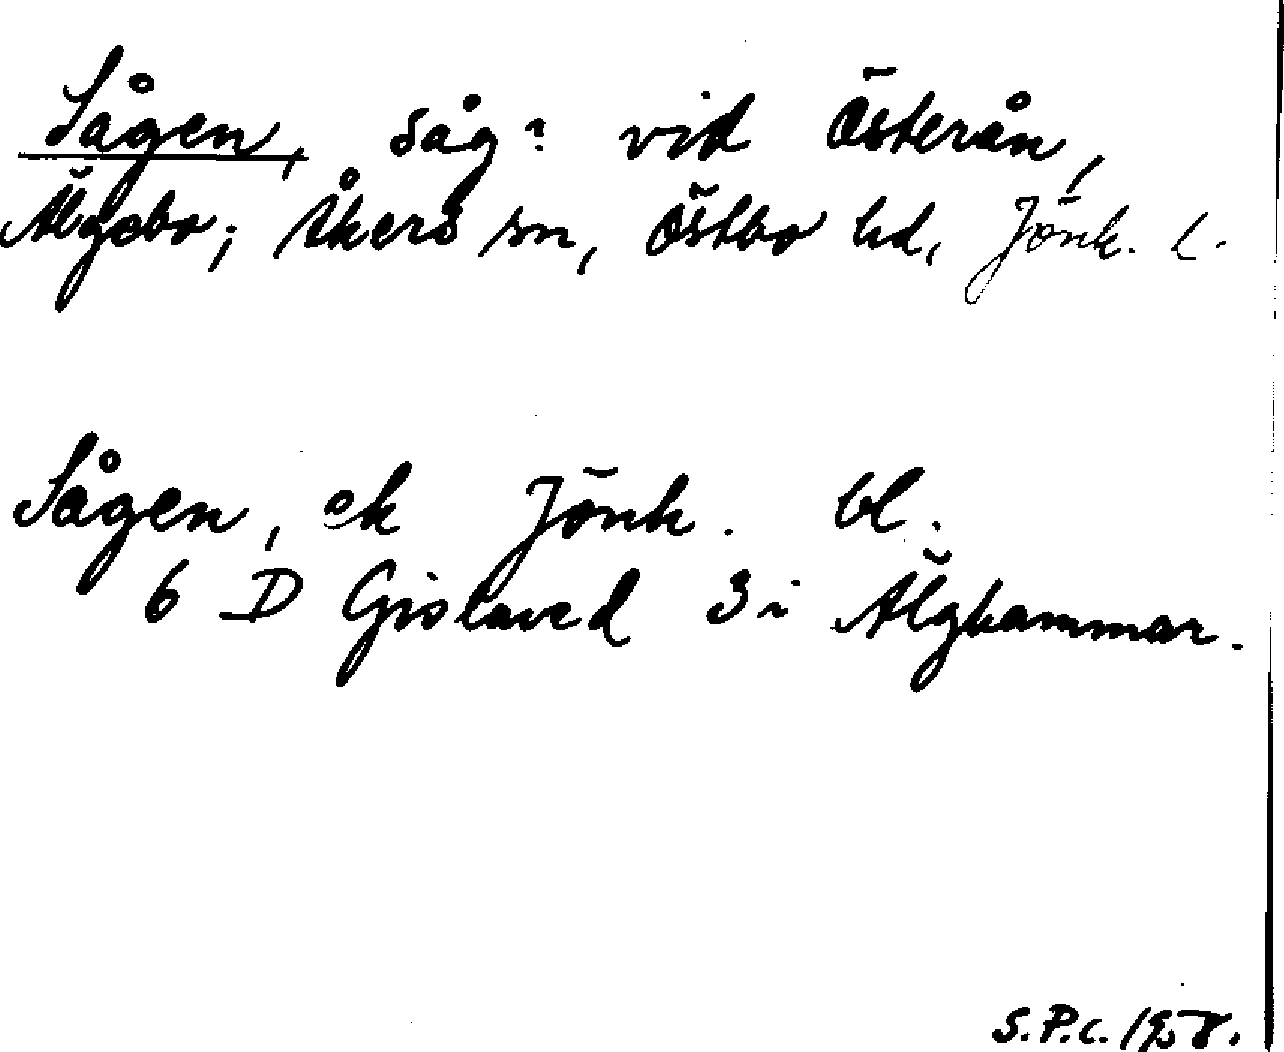 Sågen, såg? vid Österån,
Älgebo; Åkers sn, Östbo hd, Jönk. l.
Sågen, ek Jönk. bl.
6 D Gislaved 3i Älghammar.
S.P.C. 1958.